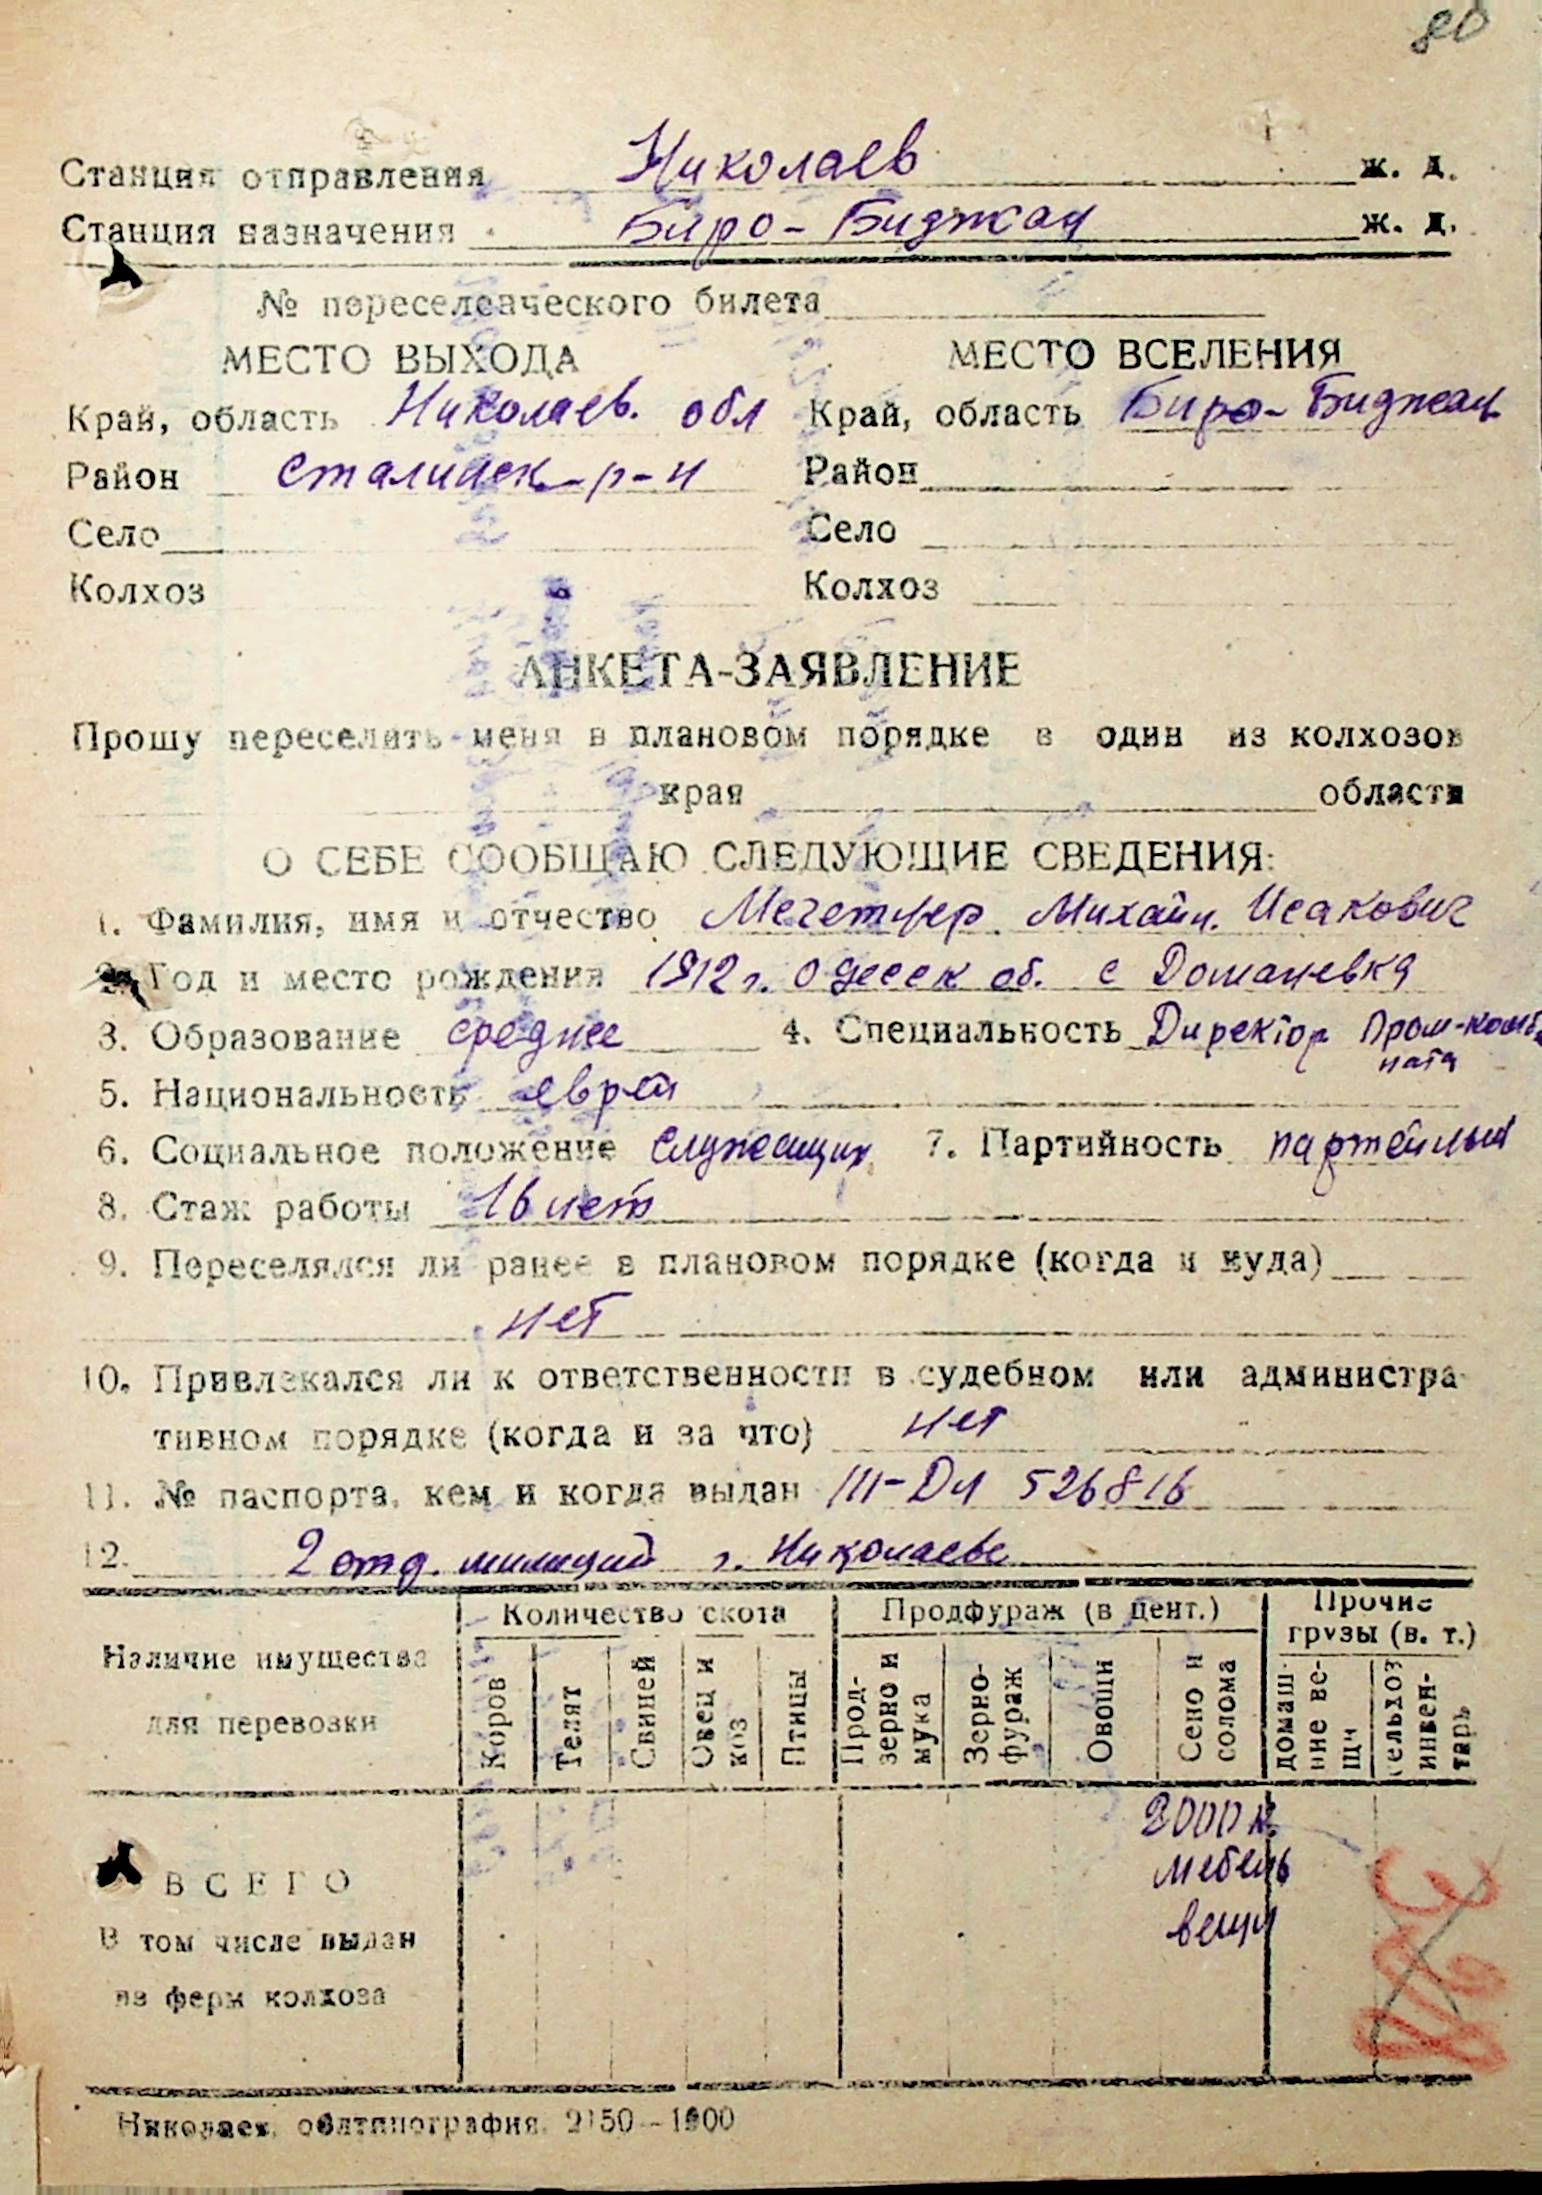 80
Станция отправления Николаев ж. д.
Станция назначения Биро-Биджан ж. д.
№ переселенческого билета
МЕСТО ВЫХОДА МЕСТО ВСЕЛЕНИЯ
Край, область Николаев. обл Край, область Биро-Биджан
Район Сталинск-р-н Район
Село Село
Колхоз Колхоз
АНКЕТА-ЗАЯВЛЕНИЕ
Прошу переселить меня в плановом порядке в один из колхозов
края области
О СЕБЕ СООБЩАЮ СЛЕДУЮЩИЕ СВЕДЕНИЯ:
1. Фамилия, имя и отчество Михаил. Исакович
2. Год и место рождения 1912 г. Одесск об. с Доманевка
3. Образование среднее 4. Специальность Директор Пром-комби
ната
5. Национальность еврей
6. Социальное положение Служащих 7. Партийность партейный
8. Стаж работы 16 лет
9. Переселялся ли ранее в плановом порядке (когда и куда)
нет
10. Привлекался ли к ответственности в судебном или администра
тивном порядке (когда и за что) нет
11. № паспорта, кем и когда выдан III-Дл 526816
12. 2 отд. милиций г. Николаеве
Наличие имущества для перевозки
Количество скота
Продфураж (в цент.)
Прочие грузы (в. т.)
Коров
Телят
Свиней
Овец и коз
Птицы
Прод-зерно и мука
Зерно-фураж
Овощи
Сено и солома
домаш-ние ве-щи
сельхоз инвен-тарь
2000 к.
мебель
вещи
ВСЕГО
В том числе выдан
из ферм колхоза
Николаев, облтипография. 2150—1900